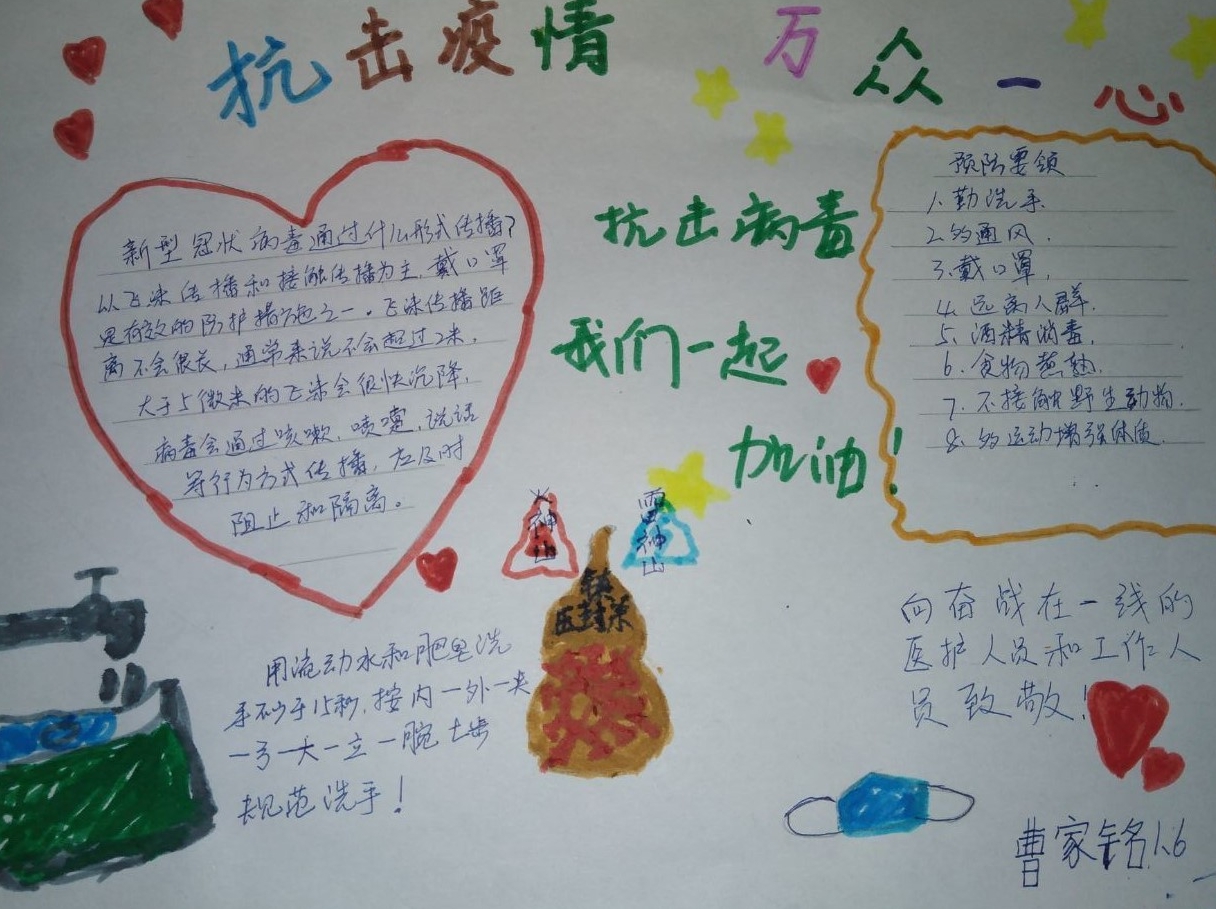 抗击疫情 万众一心
新型冠状病毒通过什么形式传播?
以飞沫传播和接触传播为主,戴口罩
是有效的防护措施之一。飞沫传播距
离不会很长,通常来说不会超过2米,
大于5微米的飞沫会很快沉降,
病毒会通过咳嗽,喷嚏,说话
等行为方式传播,应及时
阻止和隔离。
抗击病毒
我们一起
加油!
预防要领
1.勤洗手
2.多通风.
3.戴口罩,
4.远离人群.
5.酒精消毒,
6.食物煮熟,
7.不接触野生动物.
8.多运动增强体质.
火神山
雷神山
铁
压封条
用流动水和肥皂洗
手不少于15秒,按内一外一夹
一弓一大一立一腕七步
规范洗手!
向奋战在一线的
医护人员和工作人
员致敬!
曹家铭1.6